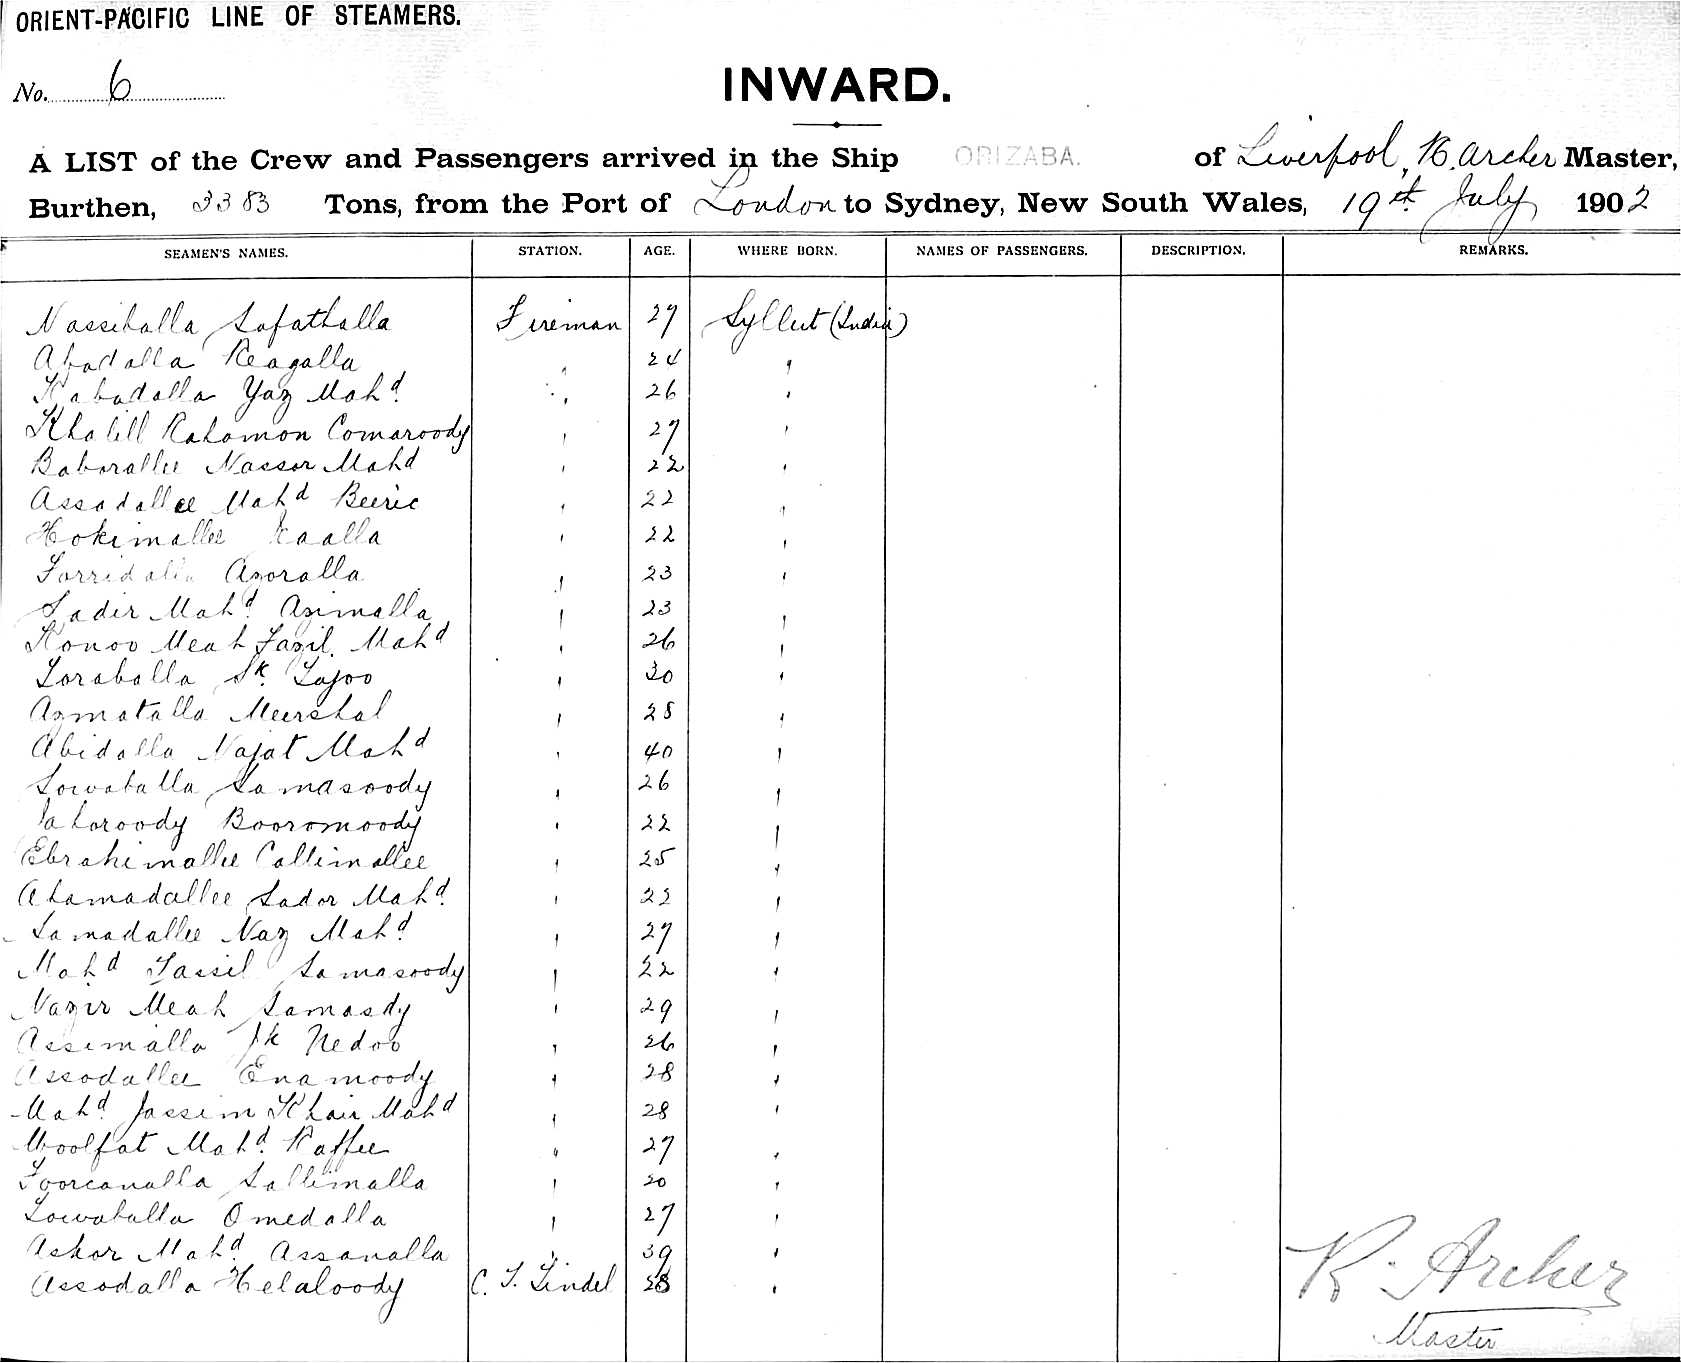 ORIENT-PACIFIC LINE OF STEAMERS.
No. 6
INWARD.
A LIST of the Crew and Passengers arrived in the Ship ORIZABA. of Liverpool, R. Archer Master,
Burthen, 3383 Tons, from the Port of London to Sydney, New South Wales, 19th July 1902
SEAMEN'S NAMES. STATION. AGE. WHERE BORN. NAMES OF PASSENGERS. DESCRIPTION. REMARKS.
Nassiballa Safathalla Fireman 27 Syllut (India)
Abadalla Reagalla " 24 "
Kabadalla Yaz Mahd " 26 "
Khalill Rahamon Comaroody " 27 "
Baborallee Nassor Mahd " 22 "
Assadallee Mahd Beeric " 22 "
Hokimallee " 22 "
Forridalla Azoralla " 23 "
Sadir Mahd Azimalla " 23 "
Konoo Meah Fazil Mahd " 26 "
Toraballa Sk. Lajoo " 30 "
Azmatalla Meershal " 28 "
Abidalla Najat Mahd " 40 "
Sowaballa Samasoody " 26 "
Jahoroody Booromoody " 22 "
Ebrahimallee Callimallee " 25 "
Ahamadallee Sador Mahd " 22 "
Samadallee Naz Mahd " 27 "
Mahd Tassil Samasoody " 22 "
Nazir Meah Samasdy " 29 "
Assimalla Sk Nedoo " 26 "
Assodallee Enamoody " 28 "
Mahd Jassim Khair Mahd " 28 "
Woolfat Mahd Raffee " 27 "
Foorcanalla Sallimalla " 20 "
Sowaballa Omedalla " 27 "
Askor Mahd Assanalla " 39 "
Assodalla Helaloody C. T. Tindel 28 "
R. Archer
Master